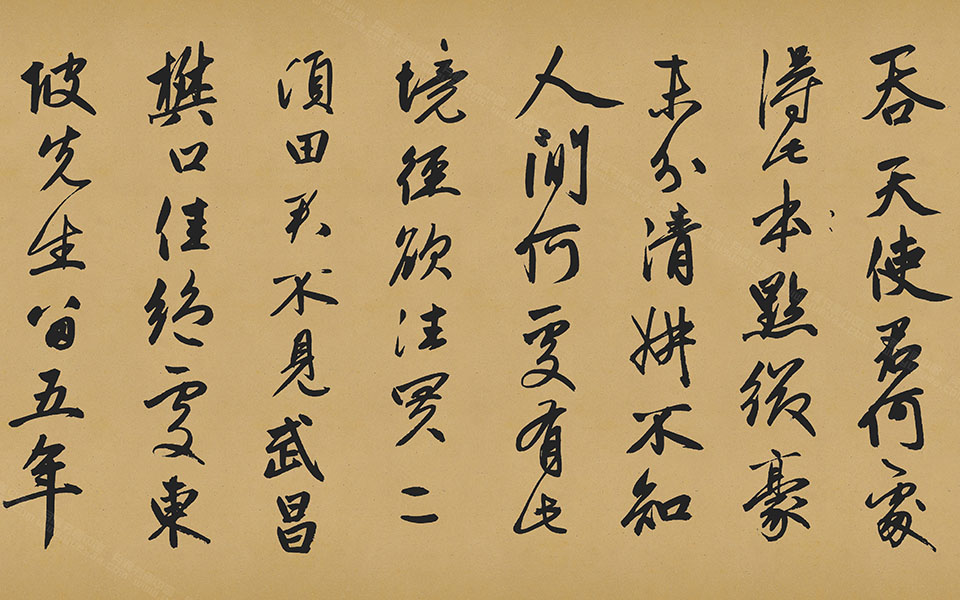 吞天使君何處
得此本點綴豪
末分清妍不知
人間何處有此
境徑欲往買二
頃田君不見武昌
樊口佳絕處東
坡先生留五年